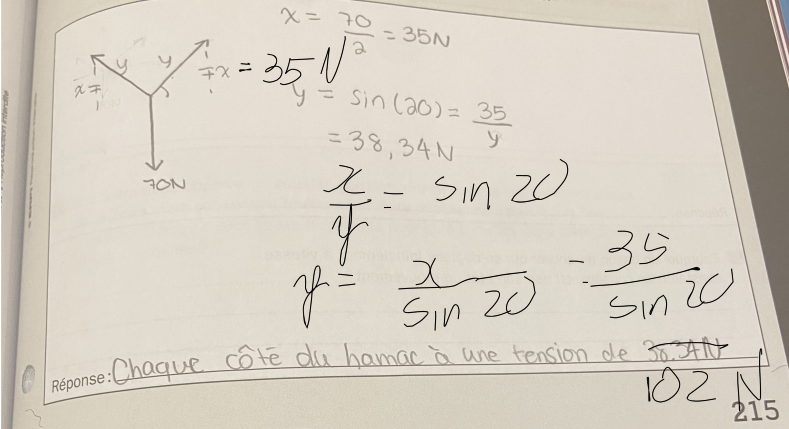 x = 70/2 = 35N
y y
x = 35 N
y = sin(20) = 35/y
= 38,34N
70N
x/y = sin 20
y = x/sin 20 = 35/sin 20
Réponse: Chaque côté du hamac à une tension de 38.34N
102 N
215